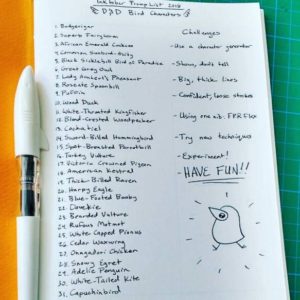 Inktober Prompt List 2018
D&D Bird Characters
1. Budgerigar
2. Superb Fairywren
3. African Emerald Cuckoo
4. Crimson Sunbird
5. Black Sicklebill Bird of Paradise
6. Great Grey Owl
7. Lady Amherst's Pheasant
8. Roseate Spoonbill
9. Puffin
10. Wood Duck
11. White-Throated Kingfisher
12. Blond-Crested Woodpecker
13. Cockatiel
14. Sword-Billed Hummingbird
15. Spot-Breasted Parrotbill
16. Turkey Vulture
17. Victoria Crowned Pigeon
18. American Kestrel
19. Thick-Billed Raven
20. Harpy Eagle
21. Blue-Footed Booby
22. Dovekie
23. Bearded Vulture
24. Rufous Motmot
25. White Capped Pionus
26. Cedar Waxwing
27. Onagadori Chicken
28. Snowy Egret
29. Adelie Penguin
30. White-Tailed Kite
31. Capuchinbird
Challenges
- Use a character generator
- Show, don't tell
- Big, thick lines
- Confident, loose strokes
- Using one nib. FPR Flex
- Try new techniques
- Experiment!
- HAVE FUN!!